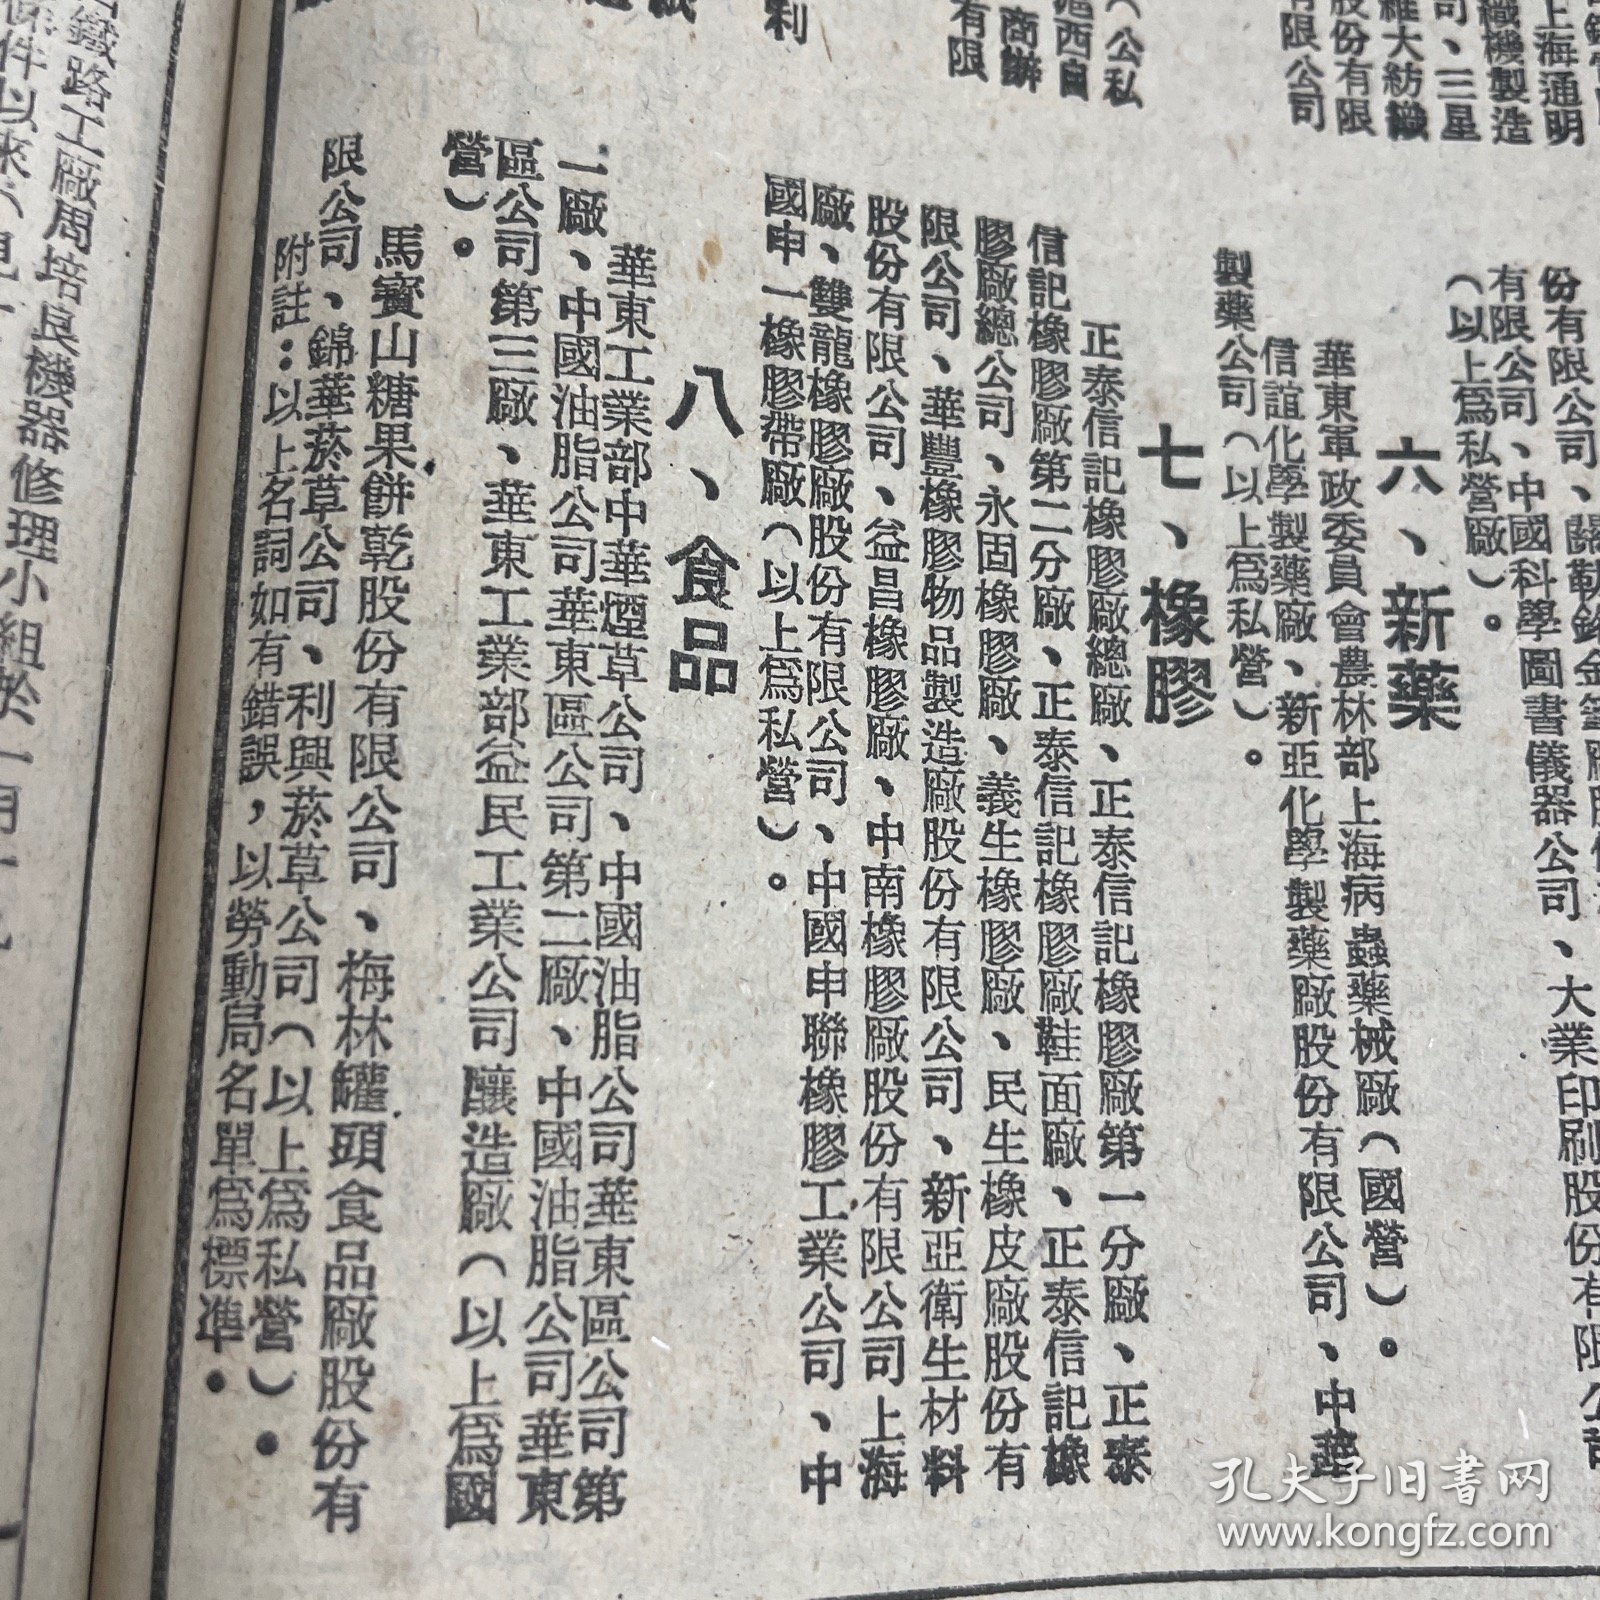 上海通明
織機製造
司、三星
維大紡織
股份有限
有限公司
（公私
滬西自
商辦
有限
利
份有限公司、關勒銘金筆廠股份
有限公司、中國科學圖書儀器公司、大業印刷股份有限公司
（以上爲私營廠）。
六、新藥
華東軍政委員會農林部上海病蟲藥械廠（國營）。
信誼化學製藥廠、新亞化學製藥廠股份有限公司、中華
製藥公司（以上爲私營）。
七、橡膠
正泰信記橡膠廠總廠、正泰信記橡膠廠第一分廠、正泰
信記橡膠廠第二分廠、正泰信記橡膠廠鞋面廠、正泰信記橡
膠廠總公司、永固橡膠廠、義生橡膠廠、民生橡皮廠股份有
限公司、華豐橡膠物品製造廠股份有限公司、新亞衛生材料
股份有限公司、益昌橡膠廠、中南橡膠廠股份有限公司上海
廠、雙龍橡膠廠股份有限公司、中國申聯橡膠工業公司、中
國申一橡膠帶廠（以上爲私營）。
八、食品
華東工業部中華煙草公司、中國油脂公司華東區公司第
一廠、中國油脂公司華東區公司第二廠、中國油脂公司華東
區公司第三廠、華東工業部益民工業公司釀造廠（以上爲國
營）。
馬寶山糖果餅乾股份有限公司、梅林罐頭食品廠股份有
限公司、錦華菸草公司、利興菸草公司（以上爲私營）。
附註：以上名詞如有錯誤，以勞動局名單爲標準。
鐵路工廠周培良機器修理小組於一月
條件以來
孔夫子旧书网
www.kongfz.com